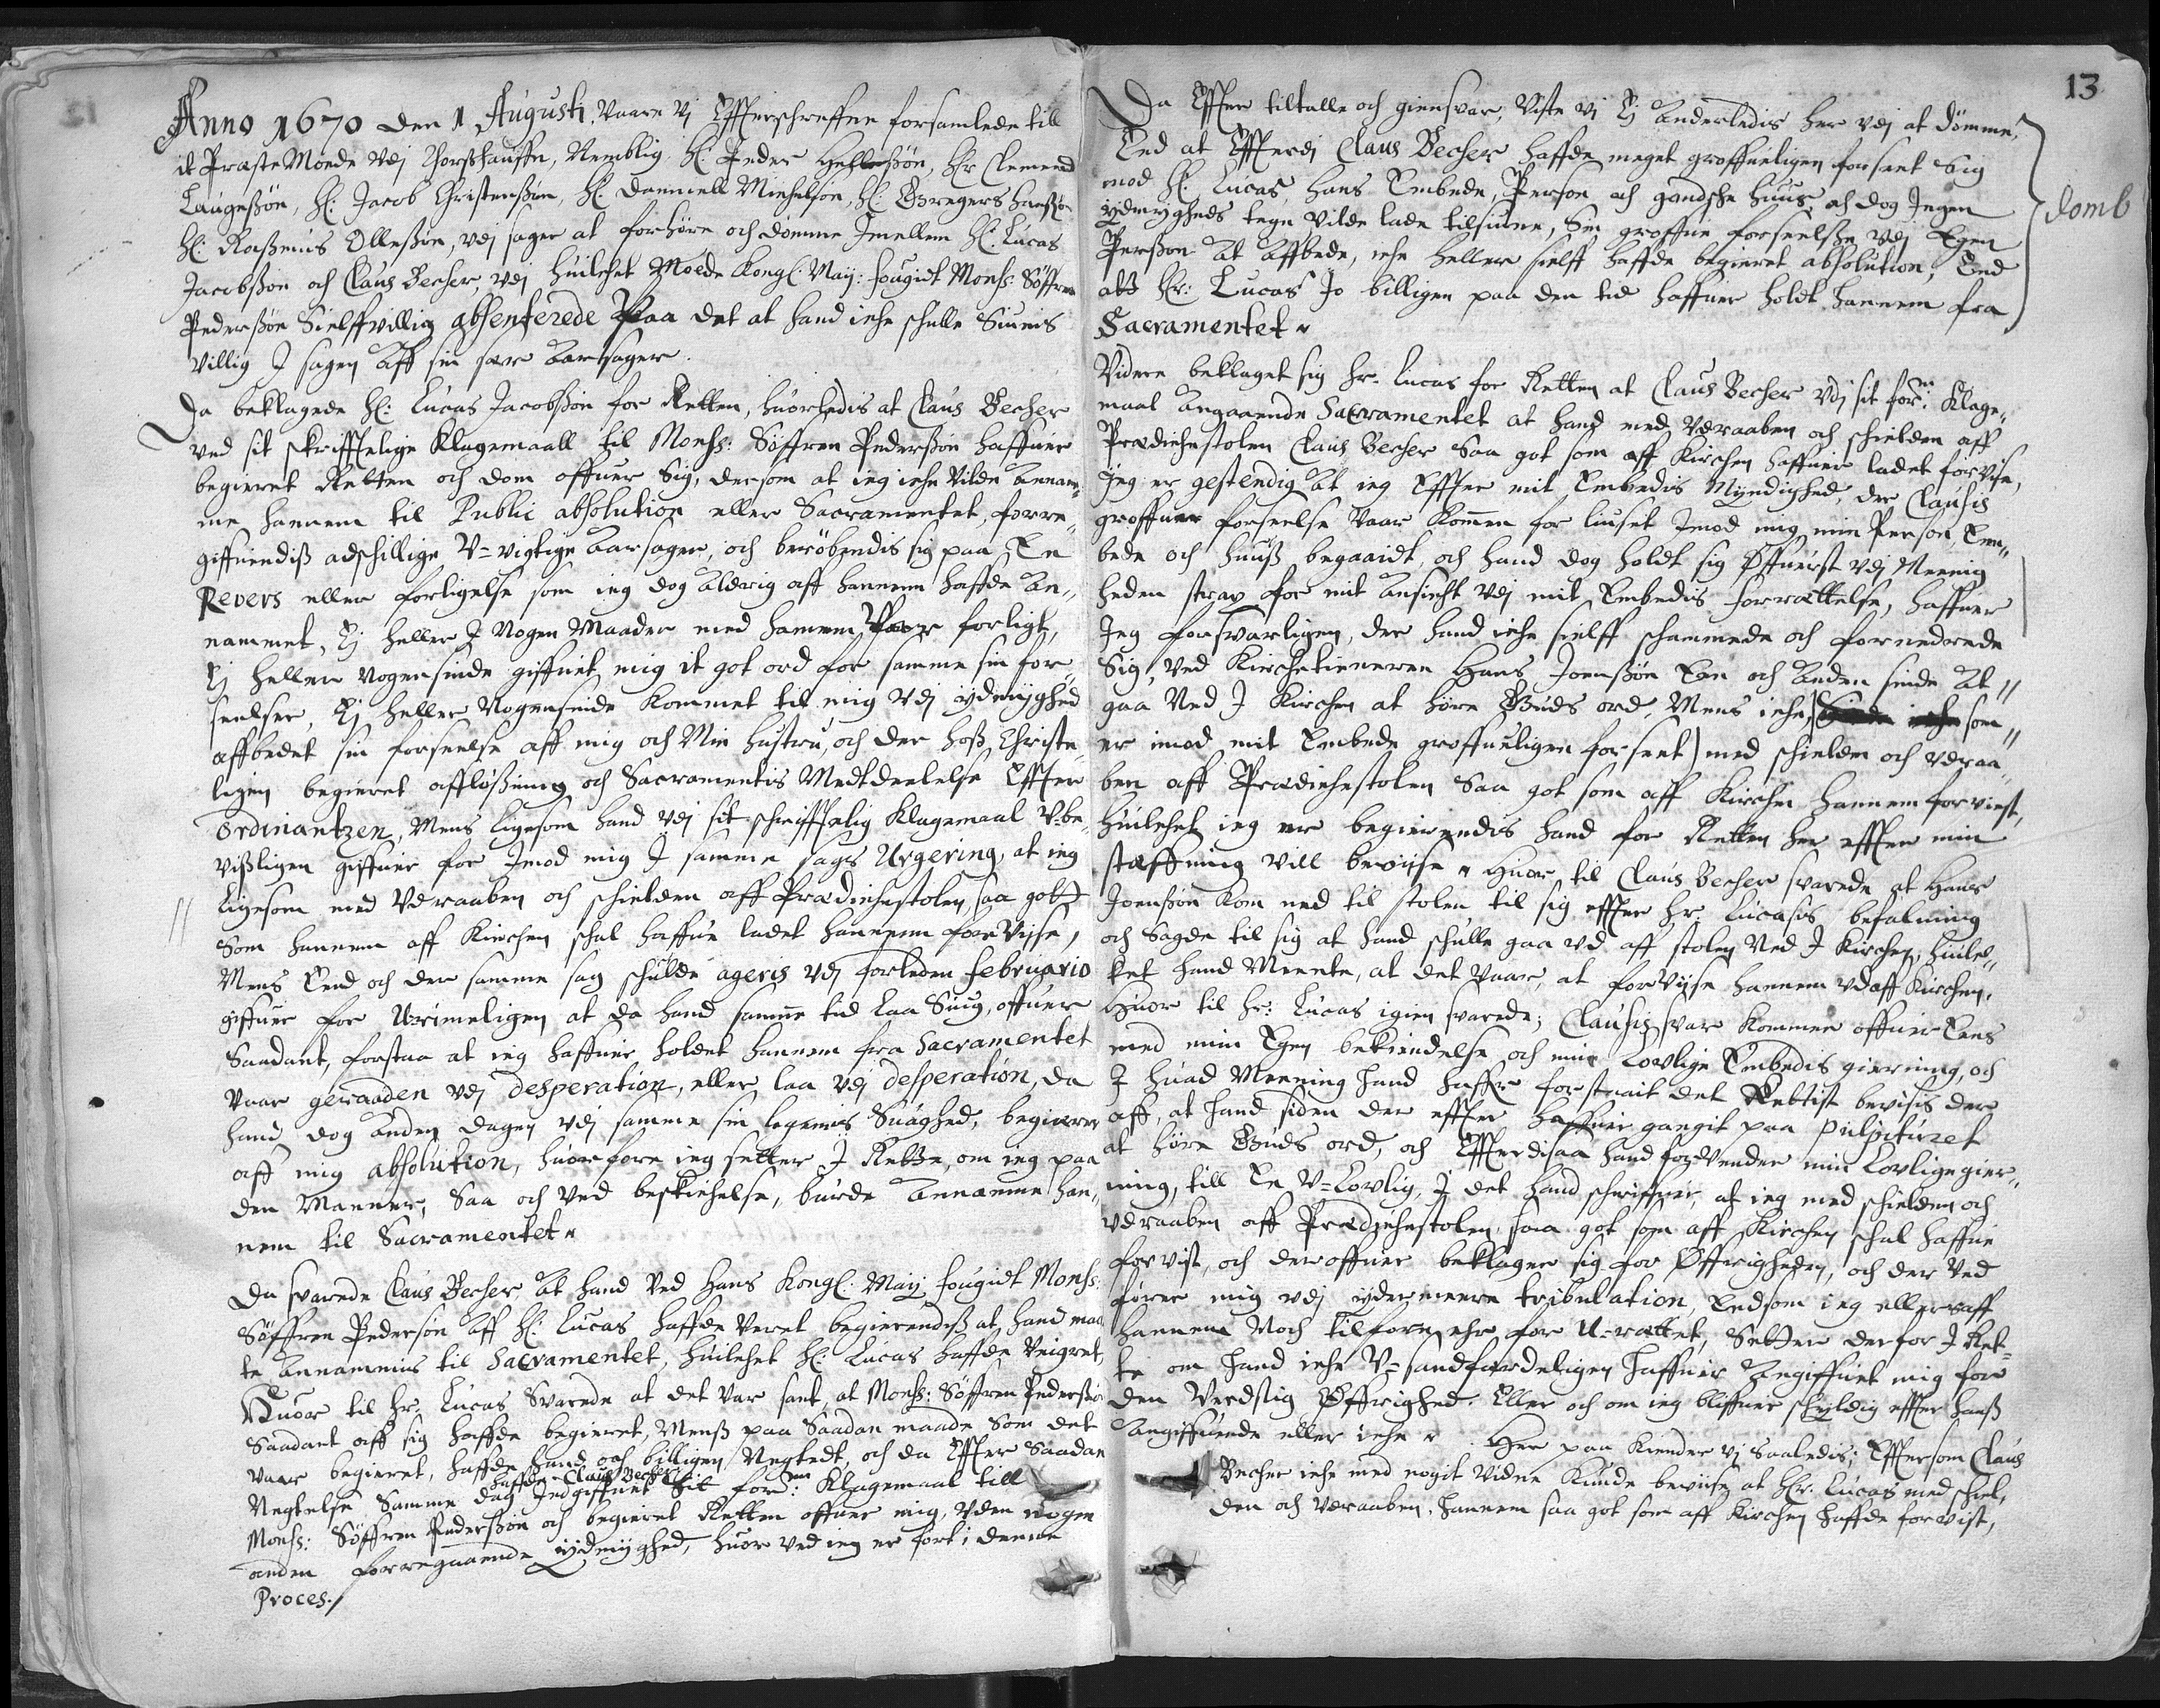 Anno 1670 den 1 Augusti, Vaare vj Effterschreffne forsamlede till
it PræsteMoede vdj Thorßhauffn, Nemblig Hl: Peder Hellesøn, Hr Clemend
Laugeßøn, Hl: Jacob Christenßøn, Hl: Danniell Michelsøn, Hl: Gregers Hanßøn
Hl: Raßmus Olleßøn, vdj sager at forhøre och dømme Imellem Hl: Lucas
Jacobßøn och Claus Becher, vdj huilchet Moede Kongl: Maij: fougidt Monss: Søffren
Pederßøn Sielffvillig absenterede Paa det at hand iche schulle Siunis
villig I sagen Aff sin sær Aarsager.
Da beklagede Hl: Lucas Jacobßøn for Retten, huorledis at Claus Becher
ved sit skrifftelige Klagemaall til Monss: Søffren Pederßøn haffuer
begieret Retten och dom offuer Sig, dersom at ieg iche Vilde Annam¬
me hannem til Public absolution eller Sacramentet, forre¬
giffuendiß adschillige V=vigtige Aarsager, och berøbendis sig paa En
Revers eller forligelse som ieg dog Aldrig aff hannem haffde An¬
nammet, Ej heller I Nogen Maader med hannem Vaar forligt,
Ej heller Nogensinde giffuet mig it got ord for samme sin for¬
seelser, Ej heller Nogensinde Kommet til mig vdj ydmyghed
affbedet sin forseelse aff mig och Min hustru, och der hoß Christe¬
ligen begieret affløßning och Sacramentis Meddeelelse Effter
Ordinantzen, Mens ligesom hand vdj sit schrifftelig Klagemaal V-be¬
vißligen giffuer for Imod mig I samme sags Urgering, at ieg
Ligesom med Vdraaben och schielden aff Prædichestolen saa gott
Som hannem aff Kirchen schal haffue ladet hannem forViise,
Mens End och der samme sag schulde ageris vdj forleden Februario
giffuer for Urimeligen at da hand samme tid Laa Siug, offuer
Saadant, forstaa at ieg haffuer holdet hannem fra Sacramentet
Vaar geraaden vdj desperation, eller laa vdj desperation, da
hand dog Anden dagen vdj samme sin legemis Suaghed, begierer
aff mig absolution, huorfore ieg setter I Rette, om ieg paa
den Manner, Saa och Ved beskichelse, burde Annamme han¬
nem til Sacramentet
Da svarede Claus Becher At hand Ved Hans Kongl: Maij fougidt Monss:
Søffren Pedersøn Aff Hl: Lucas haffde Veret begierendiß at hand maa
te Annammis til Sacramentet, huilchet Hl: Lucas haffde Veigret,
Huor til Hr. Lucas Svarede at det var sant, at Monss: Søffren Pederßøn
Saadant aff sig haffde begieret, Menß paa Saadan maade som det
Vaar begieret, haffde hand och billigen Negtedt, och da Effter Saadan
haffde Claus Becher
Negtelse Samme dag Indgiffuet Sit ford: Klagemaal till
Monss: Søffren Pederßøn och begieret Retten offuer mig, Vden nogen
anden forregaaende ydmyghed, huor ved ieg er fort i denne
Proces./
13
Da Effter tiltalle och giensvar, Viste vj Ej Anderledis her vdj at dömme,
End at Effterdj Claus Becher haffde meget groffueligen forseet Sig
mod Hl: Lucas, hans Embede, Person och gandsche huus, och dog Ingen
ydmygheds tegn Vilde lade tilsiune, Sin groffue forseelße vdj Egen
Perßon At Affbede, iche heller sielff haffde begieret absolution, End
att Hr: Lucas Jo billigen paa den tid haffuer holdt hannem fra
Sacramentet
domb
Videre beklaget sig Hr. Lucas for Retten at Claus Becher Vdj sit ford: Klage¬
maal Angaaende Sacramentet at hand med Vdraaben och schielden aff
Prædichestolen Claus Becher Saa got som aff Kirchen haffuer ladet forvise,
Jeg er gestendig At ieg Effter mit Embedis Myndighed, der Clausis
groffuer forseelse Vaar Kommen for liuset Imod mig, min Person, Em¬
bede och huuß begaaidt, och hand dog holdt sig Øffuerst vdj Meenig
heden strax for mit Ansicht vdj mit Embedis forrættelse, haffuer
Jeg forsvarligen, der hand iche sielff schammede och fornedrede
Sig, Ved Kirchetieneren Hans Joenßøn En och Anden sinde At
gaa Ned I Kirchen at høre Guds ord, Mens iche, som
er imod mit Embede groffueligen forseet) med schielden och vdraa¬
ben aff Prædichestolen Saa got som aff Kirchen hannem forviist,
huilchet ieg er begierendis hand for Retten her effter min
steffning vill beviise. Huor til Claus Becher svarede at Hans
Joenßøn Kom ned til stolen til sig effter Hr. Lucasis befalning
och Sagde til sig at hand schulle gaa vd aff stolen Ned I Kirchen, huilc¬
ket hand Meente, at det Vaar, at forViise hannem vdaff Kirchen.
Huor til Hr: Lucas igien svarede; Clausis svar Kommer offuer Eens
med min Egen bekiendelse och min Lovlige Embedis gierning, och
I huad Meening hand haffr forstaait det Rettist bevisis der
aff, at hand siden der effter haffuer gangit paa pulpituret
at høre Guds ord, och Effterdj saa hand forVender min Lovlige gier¬
ning, till En V=Lovlig, I det hand schriffuer, at ieg med schielden och
vdraaben aff Prædichestolen saa got som aff Kirchen schal haffue
forvist, och deroffuer beklager sig for Øffrigheden, och der Ved
fører mig vdj ydermeere tribulation, Endsom ieg eller aff
hannem Noch tilforn ehr for U=rættet, Setter derfor I Ret¬
te om hand iche V=sandfærdeligen haffuer Angiffuet mig for
den Verdslig Øffrighed. Eller och om ieg bliffuer schyldig effter hanß
Angiffuende eller iche. Her paa Kiender vj saaledis; Effter som Claus
Becher iche med nogit Vidne Kunde beviise at Hr. Lucas med schiel¬
den och Vdraaben, hannem saa got som aff Kirchen haffde forvist,